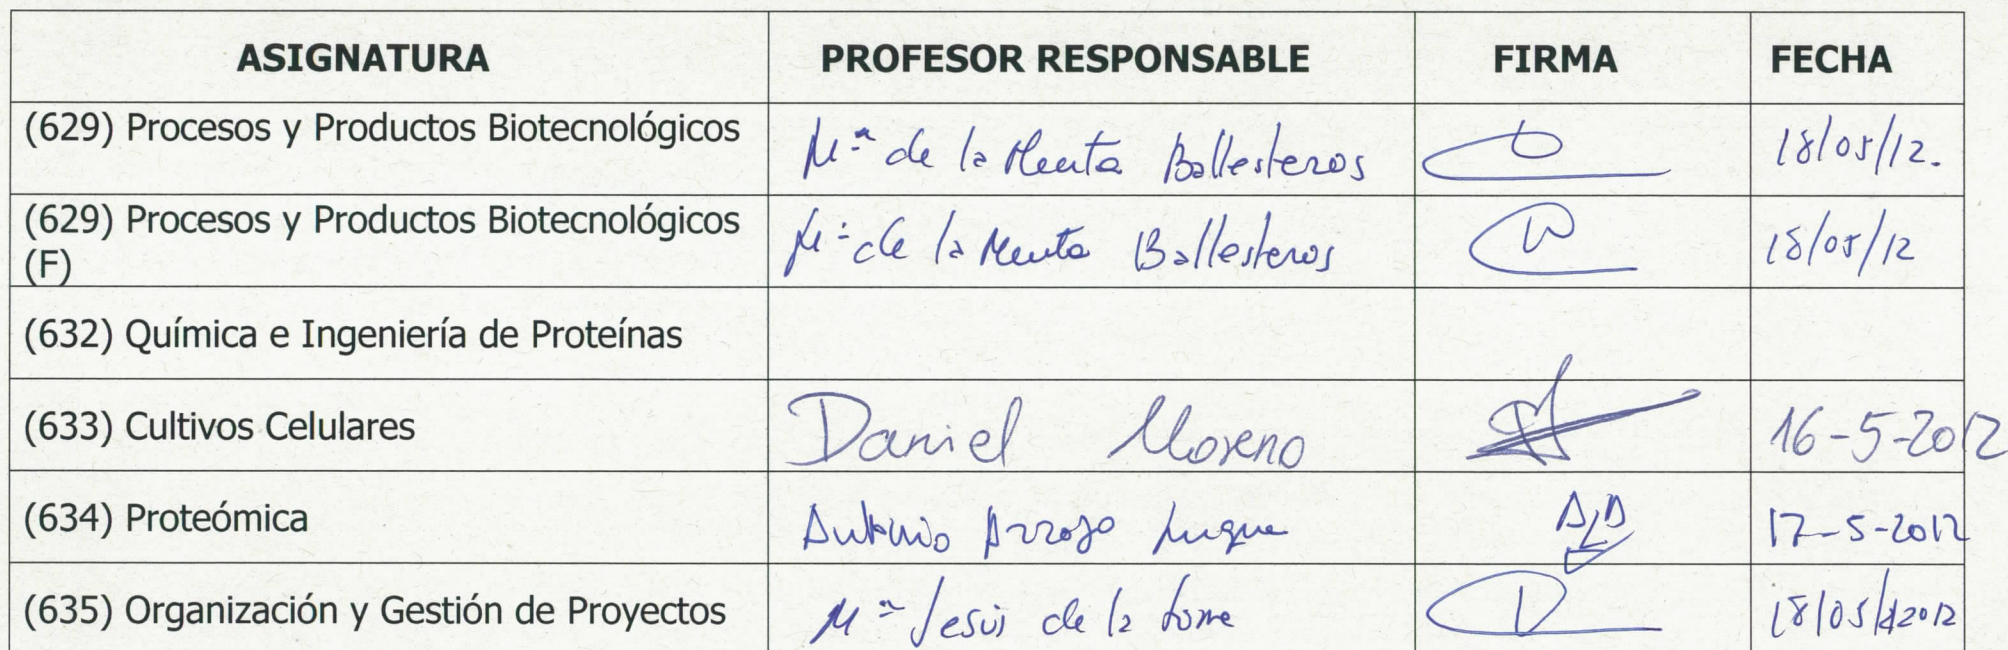 ASIGNATURA PROFESOR RESPONSABLE FIRMA FECHA
(629) Procesos y Productos Biotecnológicos Mª de la Menta Ballesteros 18/05/12.
(629) Procesos y Productos Biotecnológicos
(F) Mª de la Menta Ballesteros 18/05/12
(632) Química e Ingeniería de Proteínas
(633) Cultivos Celulares Daniel Moreno 16-5-2012
(634) Proteómica Antonio Arroyo Luque 17-5-2012
(635) Organización y Gestión de Proyectos Mª Jesús de la Torre 18/05/2012